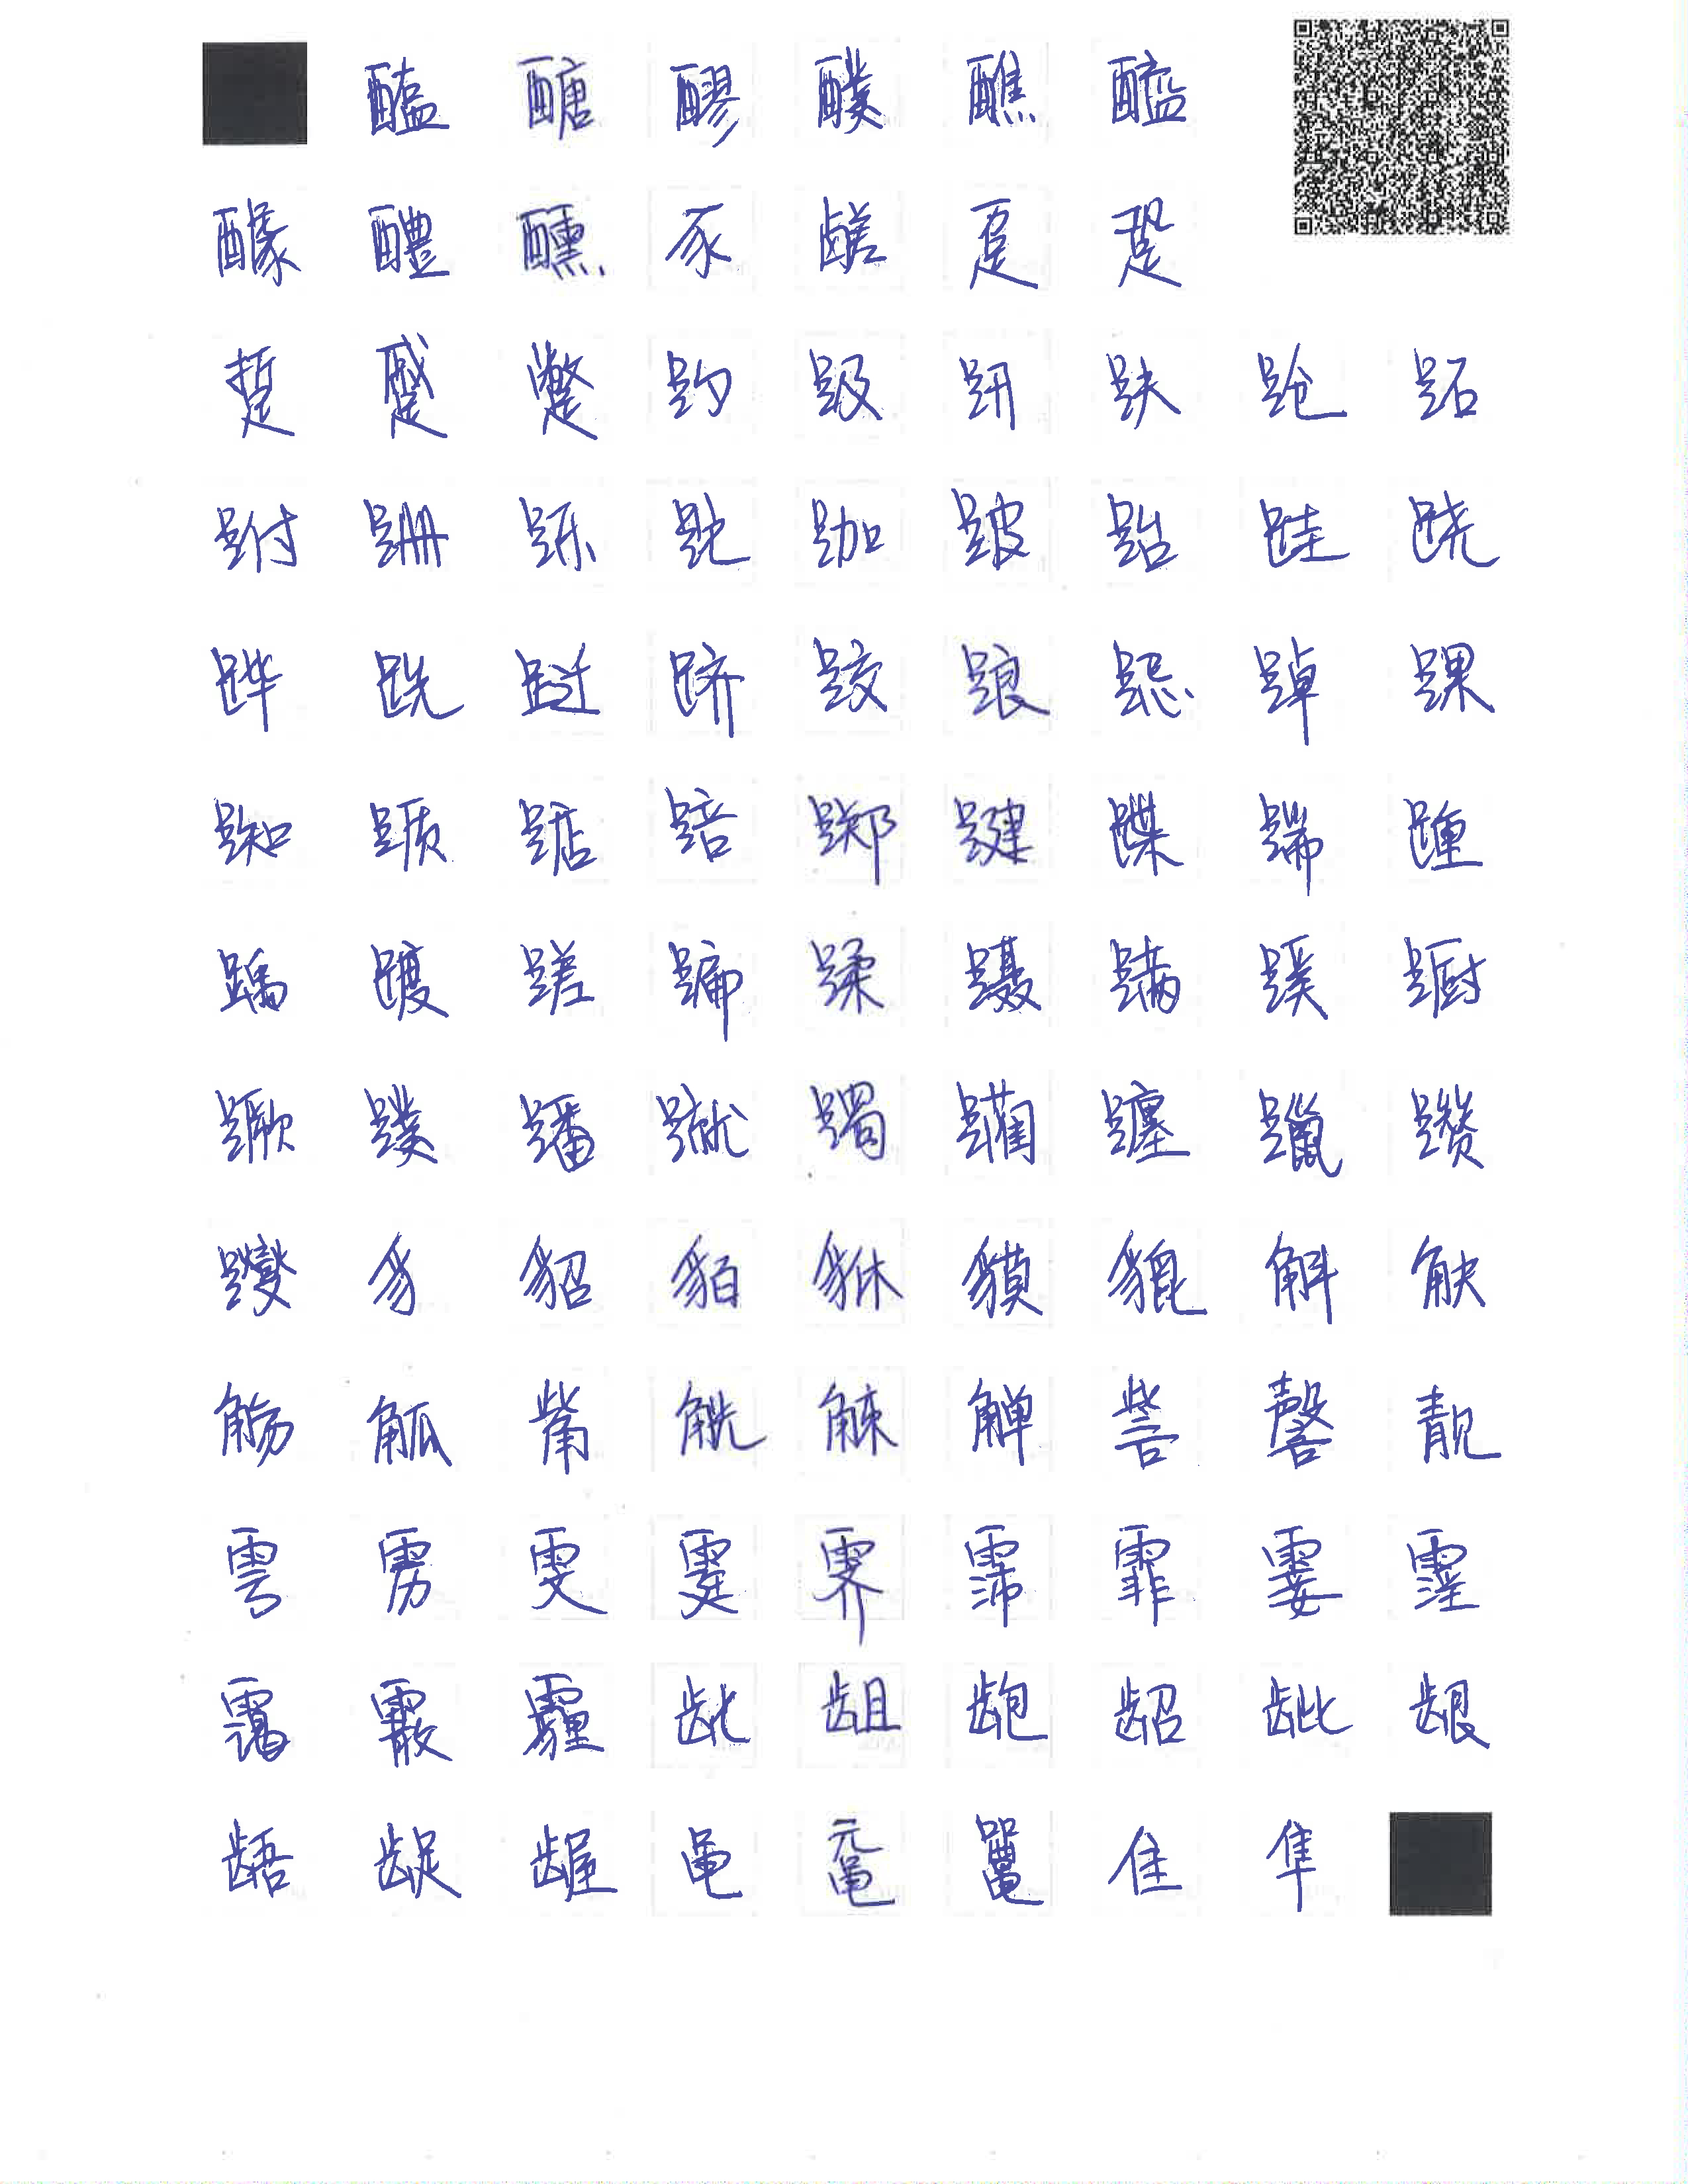 醢醣醪醭醮醯
醵醴醺豕鹾趸跫
踅蹙蹩趵趿趼趺跄跖
跗跚跞跎跏跛跆跬跷
跸跣跹跻跤踉跽踔踝
踟踬踮踣踯踺蹀踹踵
踽踱蹉蹁蹂蹑蹒蹊蹰
蹶蹼蹯蹴躅躏躔躐躜
躞豸貂貊貅貘貔斛觖
觞觚觜觥觫觯訾謦靓
雩雳雯霆霁霈霏霎霪
霭霰霾龀龃龅龆龇龈
龉龊龌黾鼋鼍隹隼